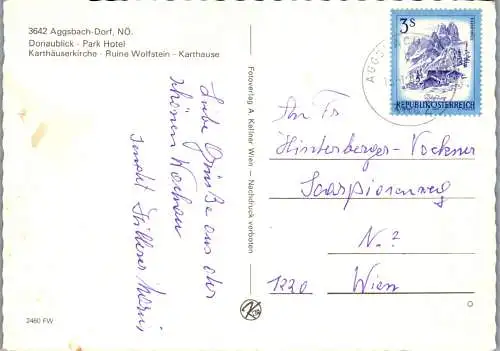 3642 Aggsbach-Dorf, NÖ.
Donaublick - Park Hotel
Karthäuserkirche - Ruine Wolfstein - Karthause
Liebe Grüße aus der
schönen Wachau
sendet
Fotoverlag A. Kellner Wien — Nachdruck verboten
3S
REPUBLIK ÖSTERREICH
An Fr
Hinterberger-Vockner
Scorpionweg
N. ?
1220 Wien
2460 FW